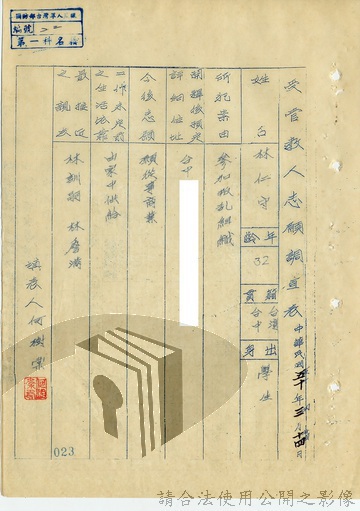 受管教人志願調查表
中華民國五十年三月十四日
姓名 林仁守
年齡 32
籍貫 台灣台中
出身 學生
所犯案由
參加叛乱組織
開釋後預定詳細住址
台中
今後志願
願從事商業
工作未定前之生活依靠
由家中供給
最接近之親友
填表人何樹棠
編號
第一科名
023
請合法使用公開之影像